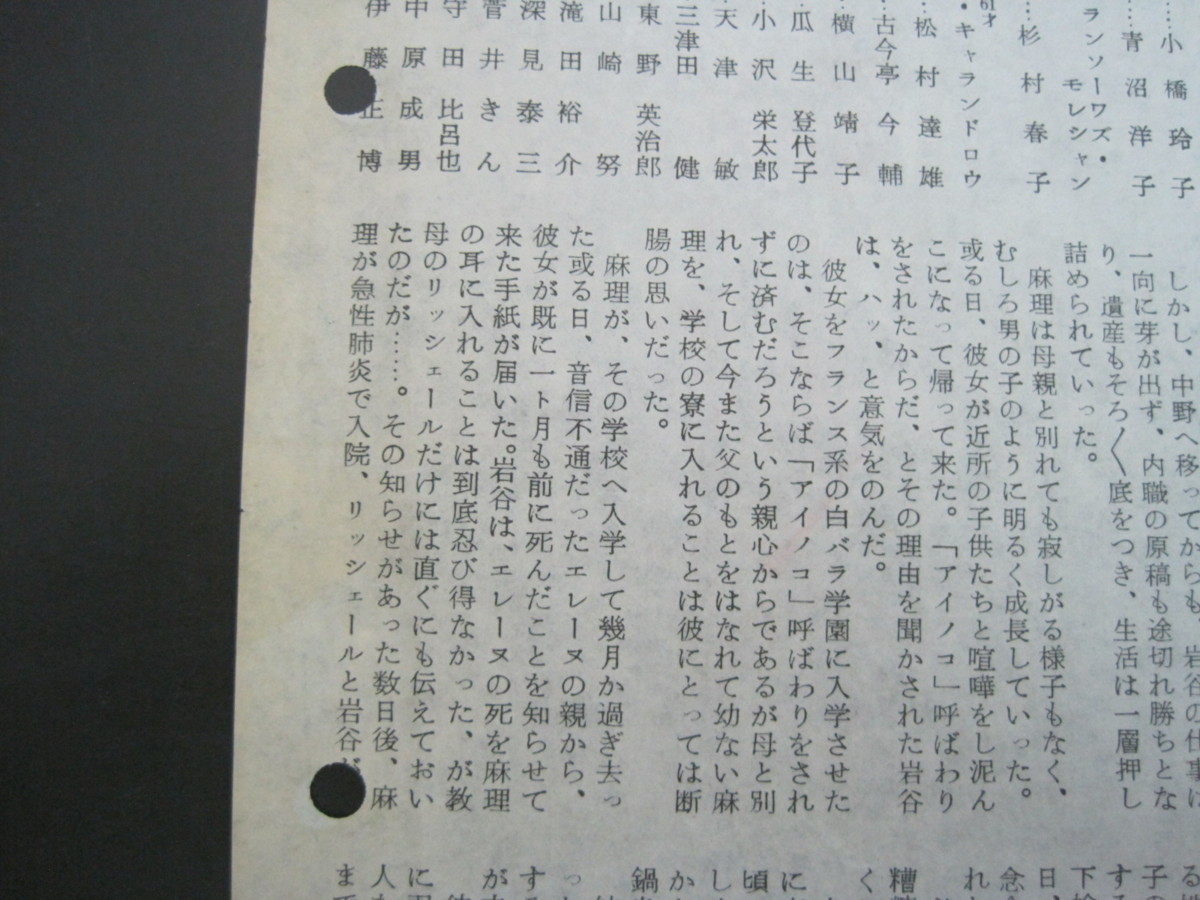 …小橋玲子
…青沼洋子
ランソーワズ・
モレシャン
…杉村春子
61才
・キャランドロウ
…松村達雄
古今亭今輔
横山靖子
瓜生登代子
小沢栄太郎
天津敏
三津田健
東野英治郎
山崎努
滝田裕介
深見泰三
菅井きん
守田比呂也
中原成男
伊藤正博
しかし、中野へ移ってからも、岩谷の仕事は
一向に芽が出ず、内職の原稿も途切れ勝ちとな
り、遺産もそろ〱底をつき、生活は一層押し
詰められていった。
麻理は母親と別れても寂しがる様子もなく、
むしろ男の子のように明るく成長していった。
或る日、彼女が近所の子供たちと喧嘩をし泥ん
こになって帰って来た。「アイノコ」呼ばわり
をされたからだ、とその理由を聞かされた岩谷
は、ハッ、と意気をのんだ。
彼女をフランス系の白バラ学園に入学させた
のは、そこならば「アイノコ」呼ばわりをされ
ずに済むだろうという親心からであるが母と別
れ、そして今また父のもとをはなれて幼ない麻
理を、学校の寮に入れることは彼にとっては断
腸の思いだった。
麻理が、その学校へ入学して幾月か過ぎ去っ
た或る日、音信不通だったエレーヌの親から、
彼女が既に一ト月も前に死んだことを知らせて
来た手紙が届いた。岩谷は、エレーヌの死を麻理
の耳に入れることは到底忍び得なかった、が教
母のリッシェールだけには直ぐにも伝えておい
たのだが……。その知らせがあった数日後、麻
理が急性肺炎で入院、リッシェールと岩谷が